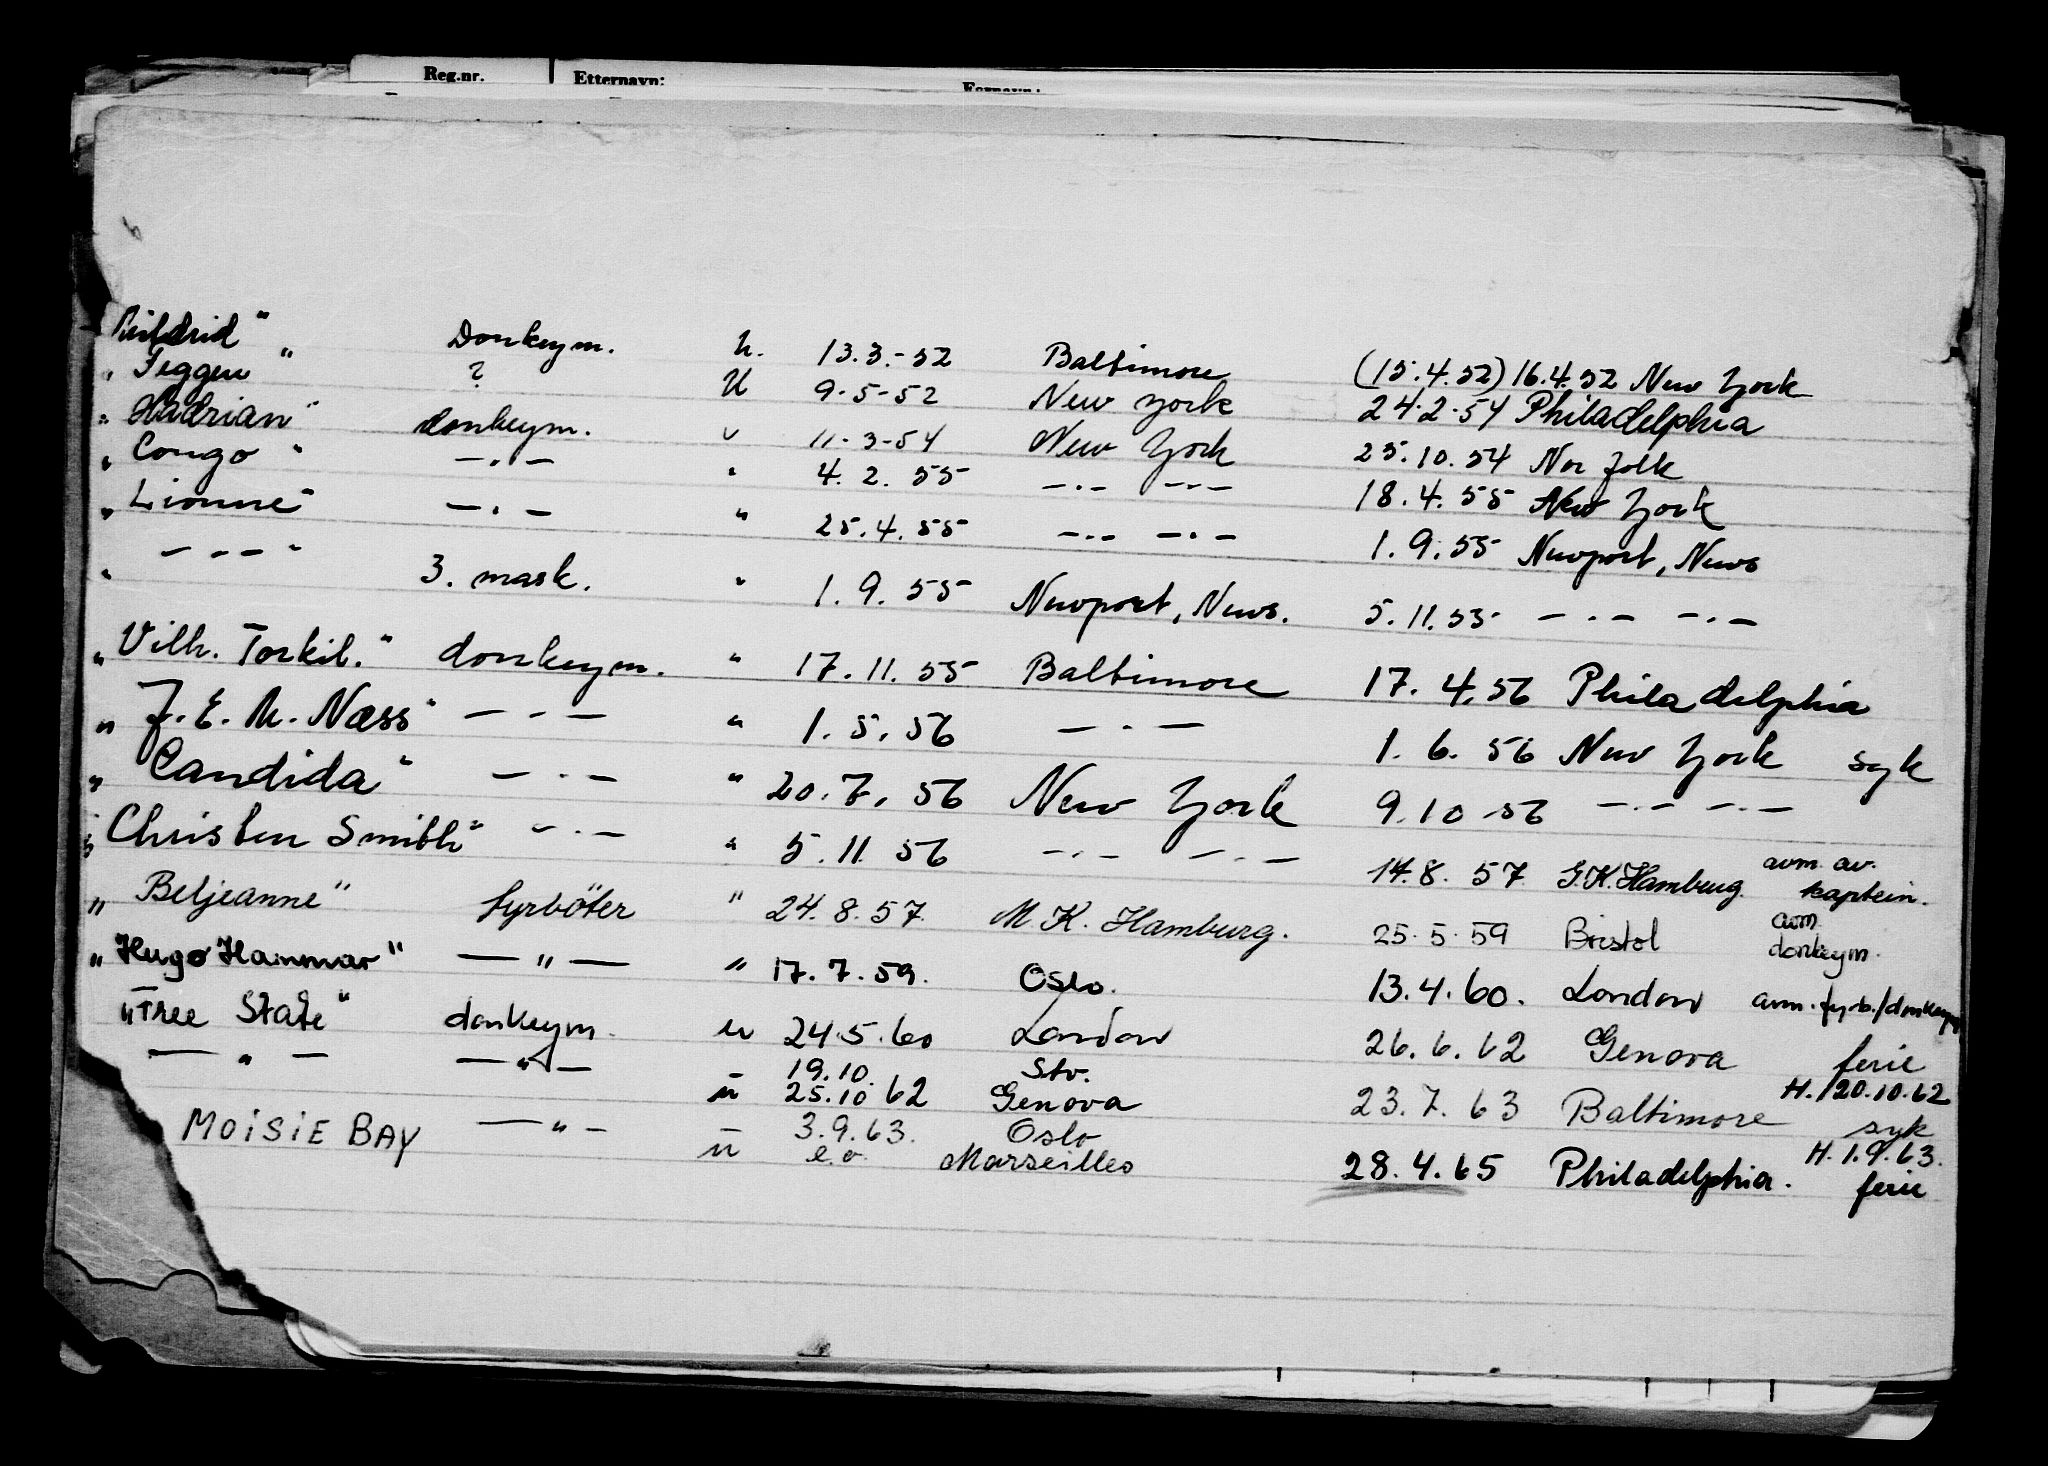 Reg.nr. Etternavn: Fornavn:
Kildrid" Donkeym. u. 13.3.-52 Baltimore (15.4.52) 16.4.52 New York
" Feggen " ? U 9-5-52 New York 24.2.54 Philadelphia
" Hadrian" donkeym. " 11-3-54 New York 25.10.54 Nor folk
" Congo " — . — " 4. 2. 55 — . — — . — 18.4.55 New York
" Lionne" — . — " 25.4.55 — . — — . — 1.9.55 Newport, News
" — . — " 3. mask. " 1. 9. 55 Newport, News. 5.11.55 — . — — . —
" Vilh. Torkil." donkeym. " 17.11.55 Baltimore 17. 4.56 Philadelphia
" J. E. M. Næss" — . — " 1. 5. 56 — . — 1. 6. 56 New York syk
" Candida" — . — " 20. 7. 56 New York 9.10 56 — . — — . —
" Christen Smith" — . — " 5. 11. 56 — . — — . — 14.8. 57 G.K. Hamburg. avm. av. kaptein.
" Beljeanne" fyrböter " 24.8.57. M. K. Hamburg. 25.5.59 Bristol avm. donkeym.
" Hugo Hammar" — " — " 17.7.59. Oslo. 13.4.60. London avm. fyrb./donkeym
"Free State" donkeym. " 24.5.60 London 26.6.62 Genova ferie
— " — — " — " 19.10. Stv. H. 20.10.62
25.10 62 Genova 23.7.63 Baltimore syk
MOISIE BAY — " — " 3.9.63. Oslo H. 1.9.63.
e.o. Marseilles 28.4.65 Philadelphia. ferie